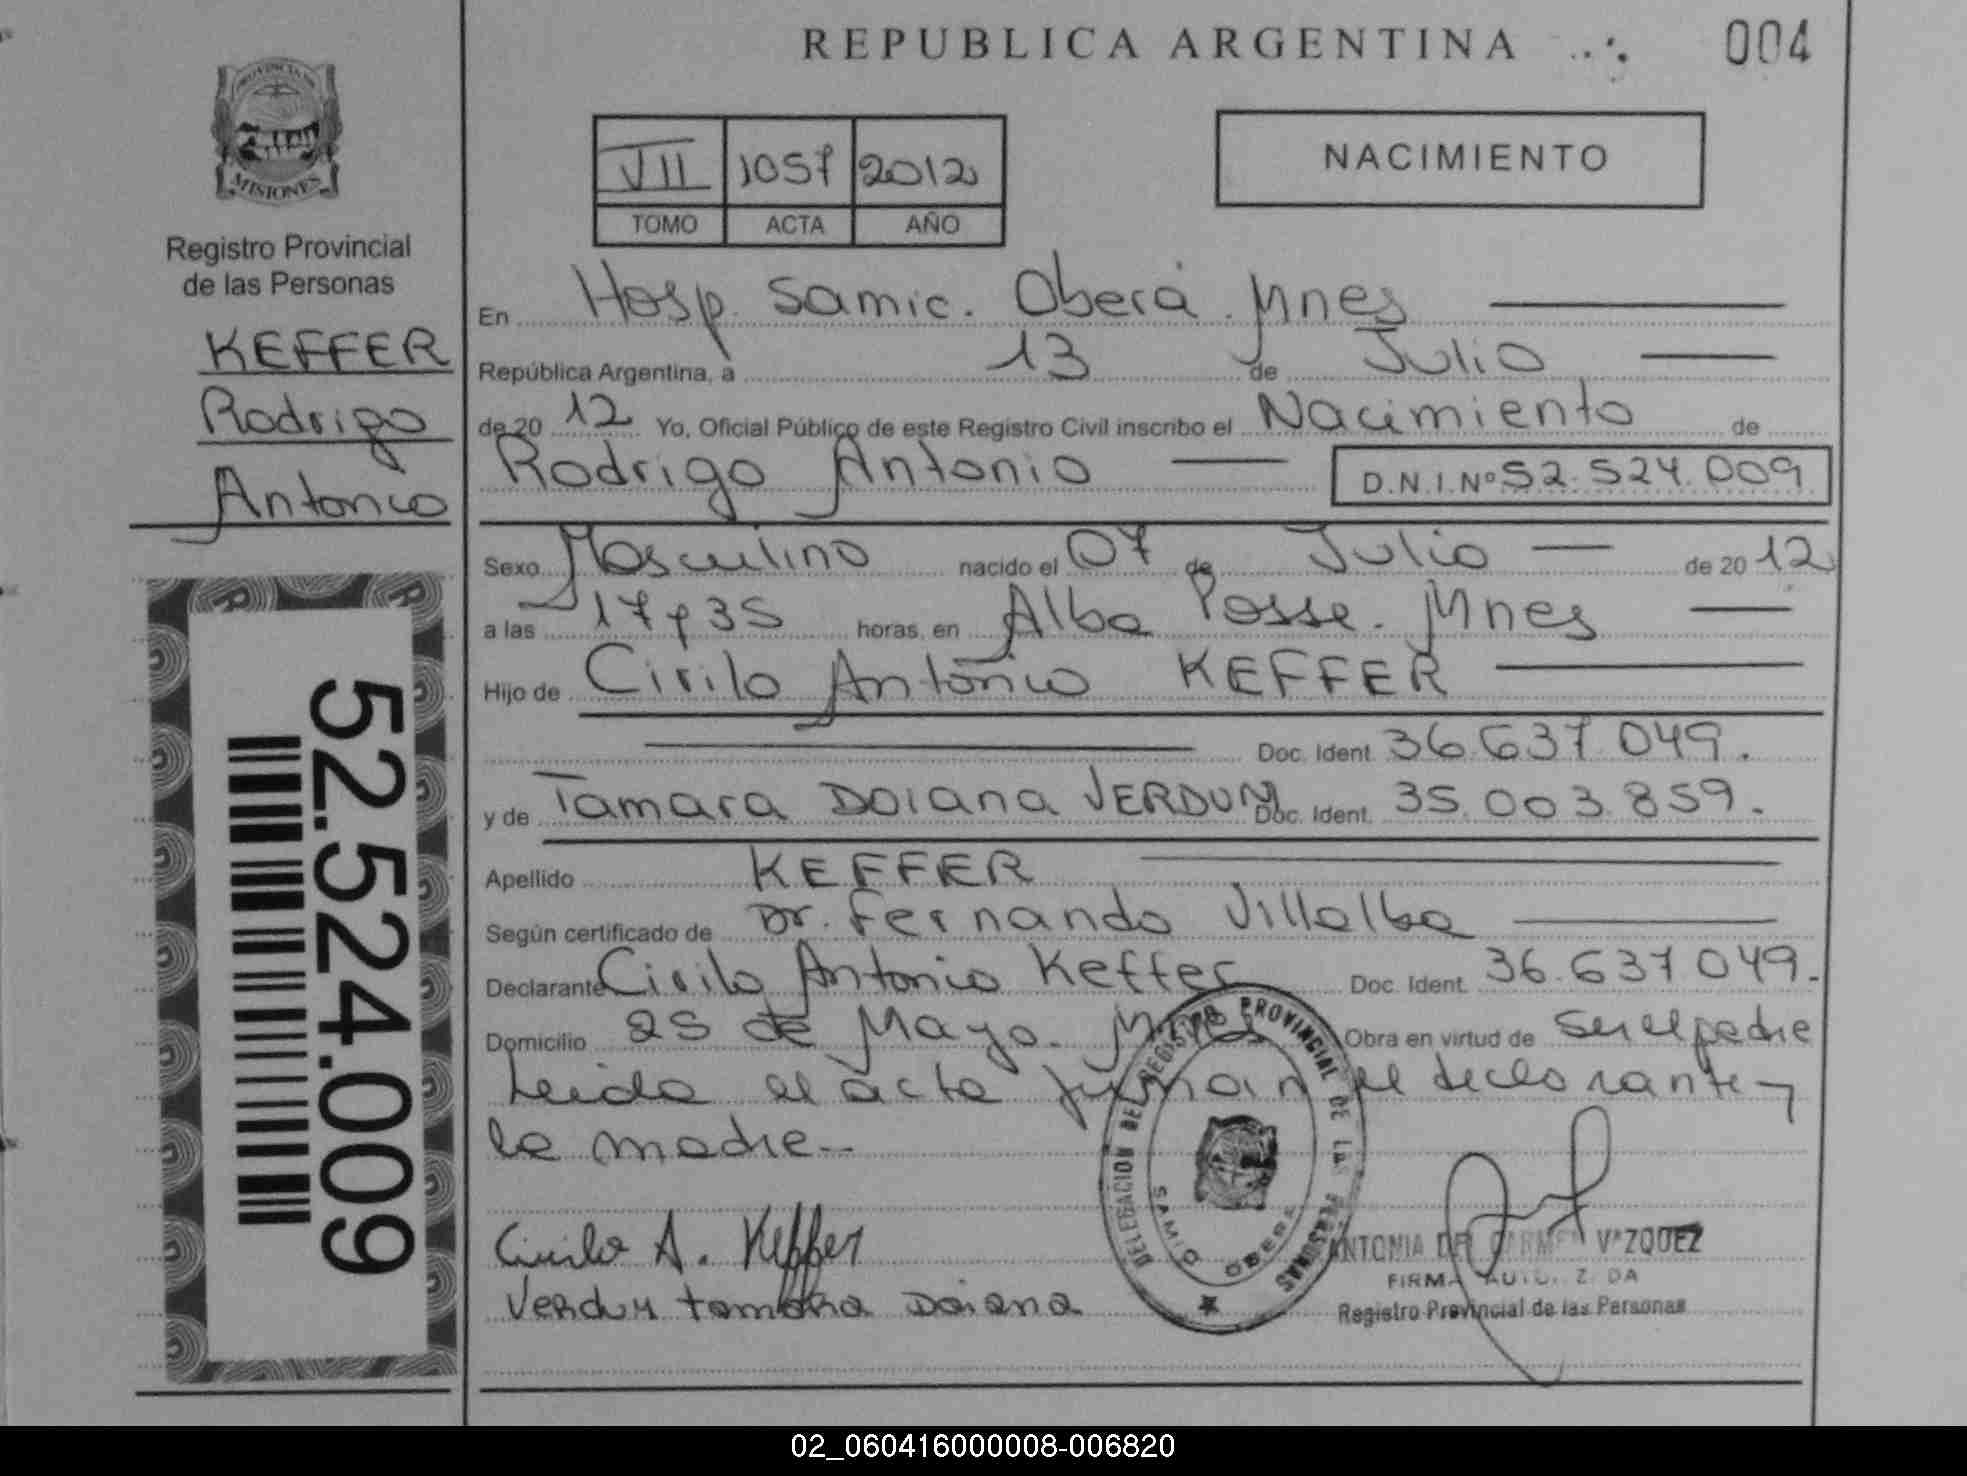 REPUBLICA ARGENTINA
004
PROVINCIA DE
MISIONES
Registro Provincial
de las Personas
KEFFER
Rodrigo
Antonio
52.524.009
VII 1057 2012
TOMO ACTA AÑO
NACIMIENTO
En Hosp. Samic. Oberá. Mnes
República Argentina, a 13 de Julio
de 20 12 Yo, Oficial Público de este Registro Civil inscribo el Nacimiento de
Rodrigo Antonio D.N.I.Nº 52.524.009
Sexo Masculino nacido el 07 de Julio de 20 12
a las 17 y 35 horas, en Alba Posse. Mnes
Hijo de Cirilo Antonio KEFFER
Doc. Ident. 36.637.049.
y de Tamara Daiana VERDUM Doc. Ident. 35.003.859.
Apellido KEFFER
Según certificado de Dr. Fernando Villalba
Declarante Cirilo Antonio Keffer Doc. Ident. 36.637.049.
Domicilio 25 de Mayo. Mnes Obra en virtud de ser el padre
Leida el acta firman el declarante y
la madre--
Cirilo A. Keffer
Verdum tamara Daiana
DELEGACION DEL REGISTRO PROVINCIAL DE LAS PERSONAS
SAMIC OBERA
ANTONIA DEL CARMEN VAZQUEZ
FIRMA AUTORIZADA
Registro Provincial de las Personas
02_060416000008-006820